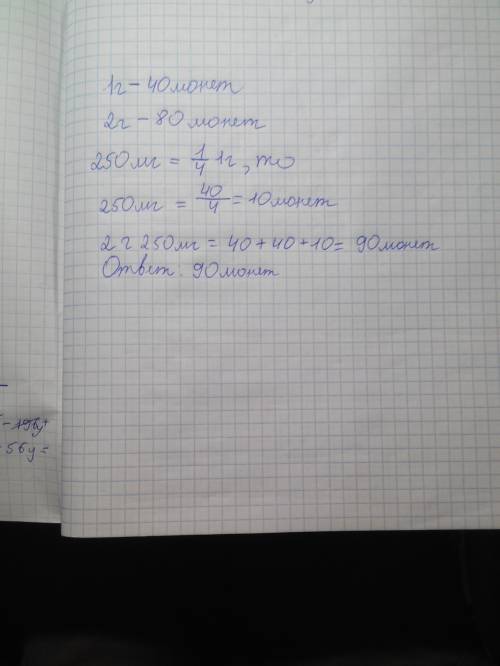 1г – 40 монет
2г – 80 монет
250 мг = 1/4 1г, то
250 мг = 40/4 = 10 монет
2 г 250 мг = 40 + 40 + 10 = 90 монет
Ответ: 90 монет
56y =